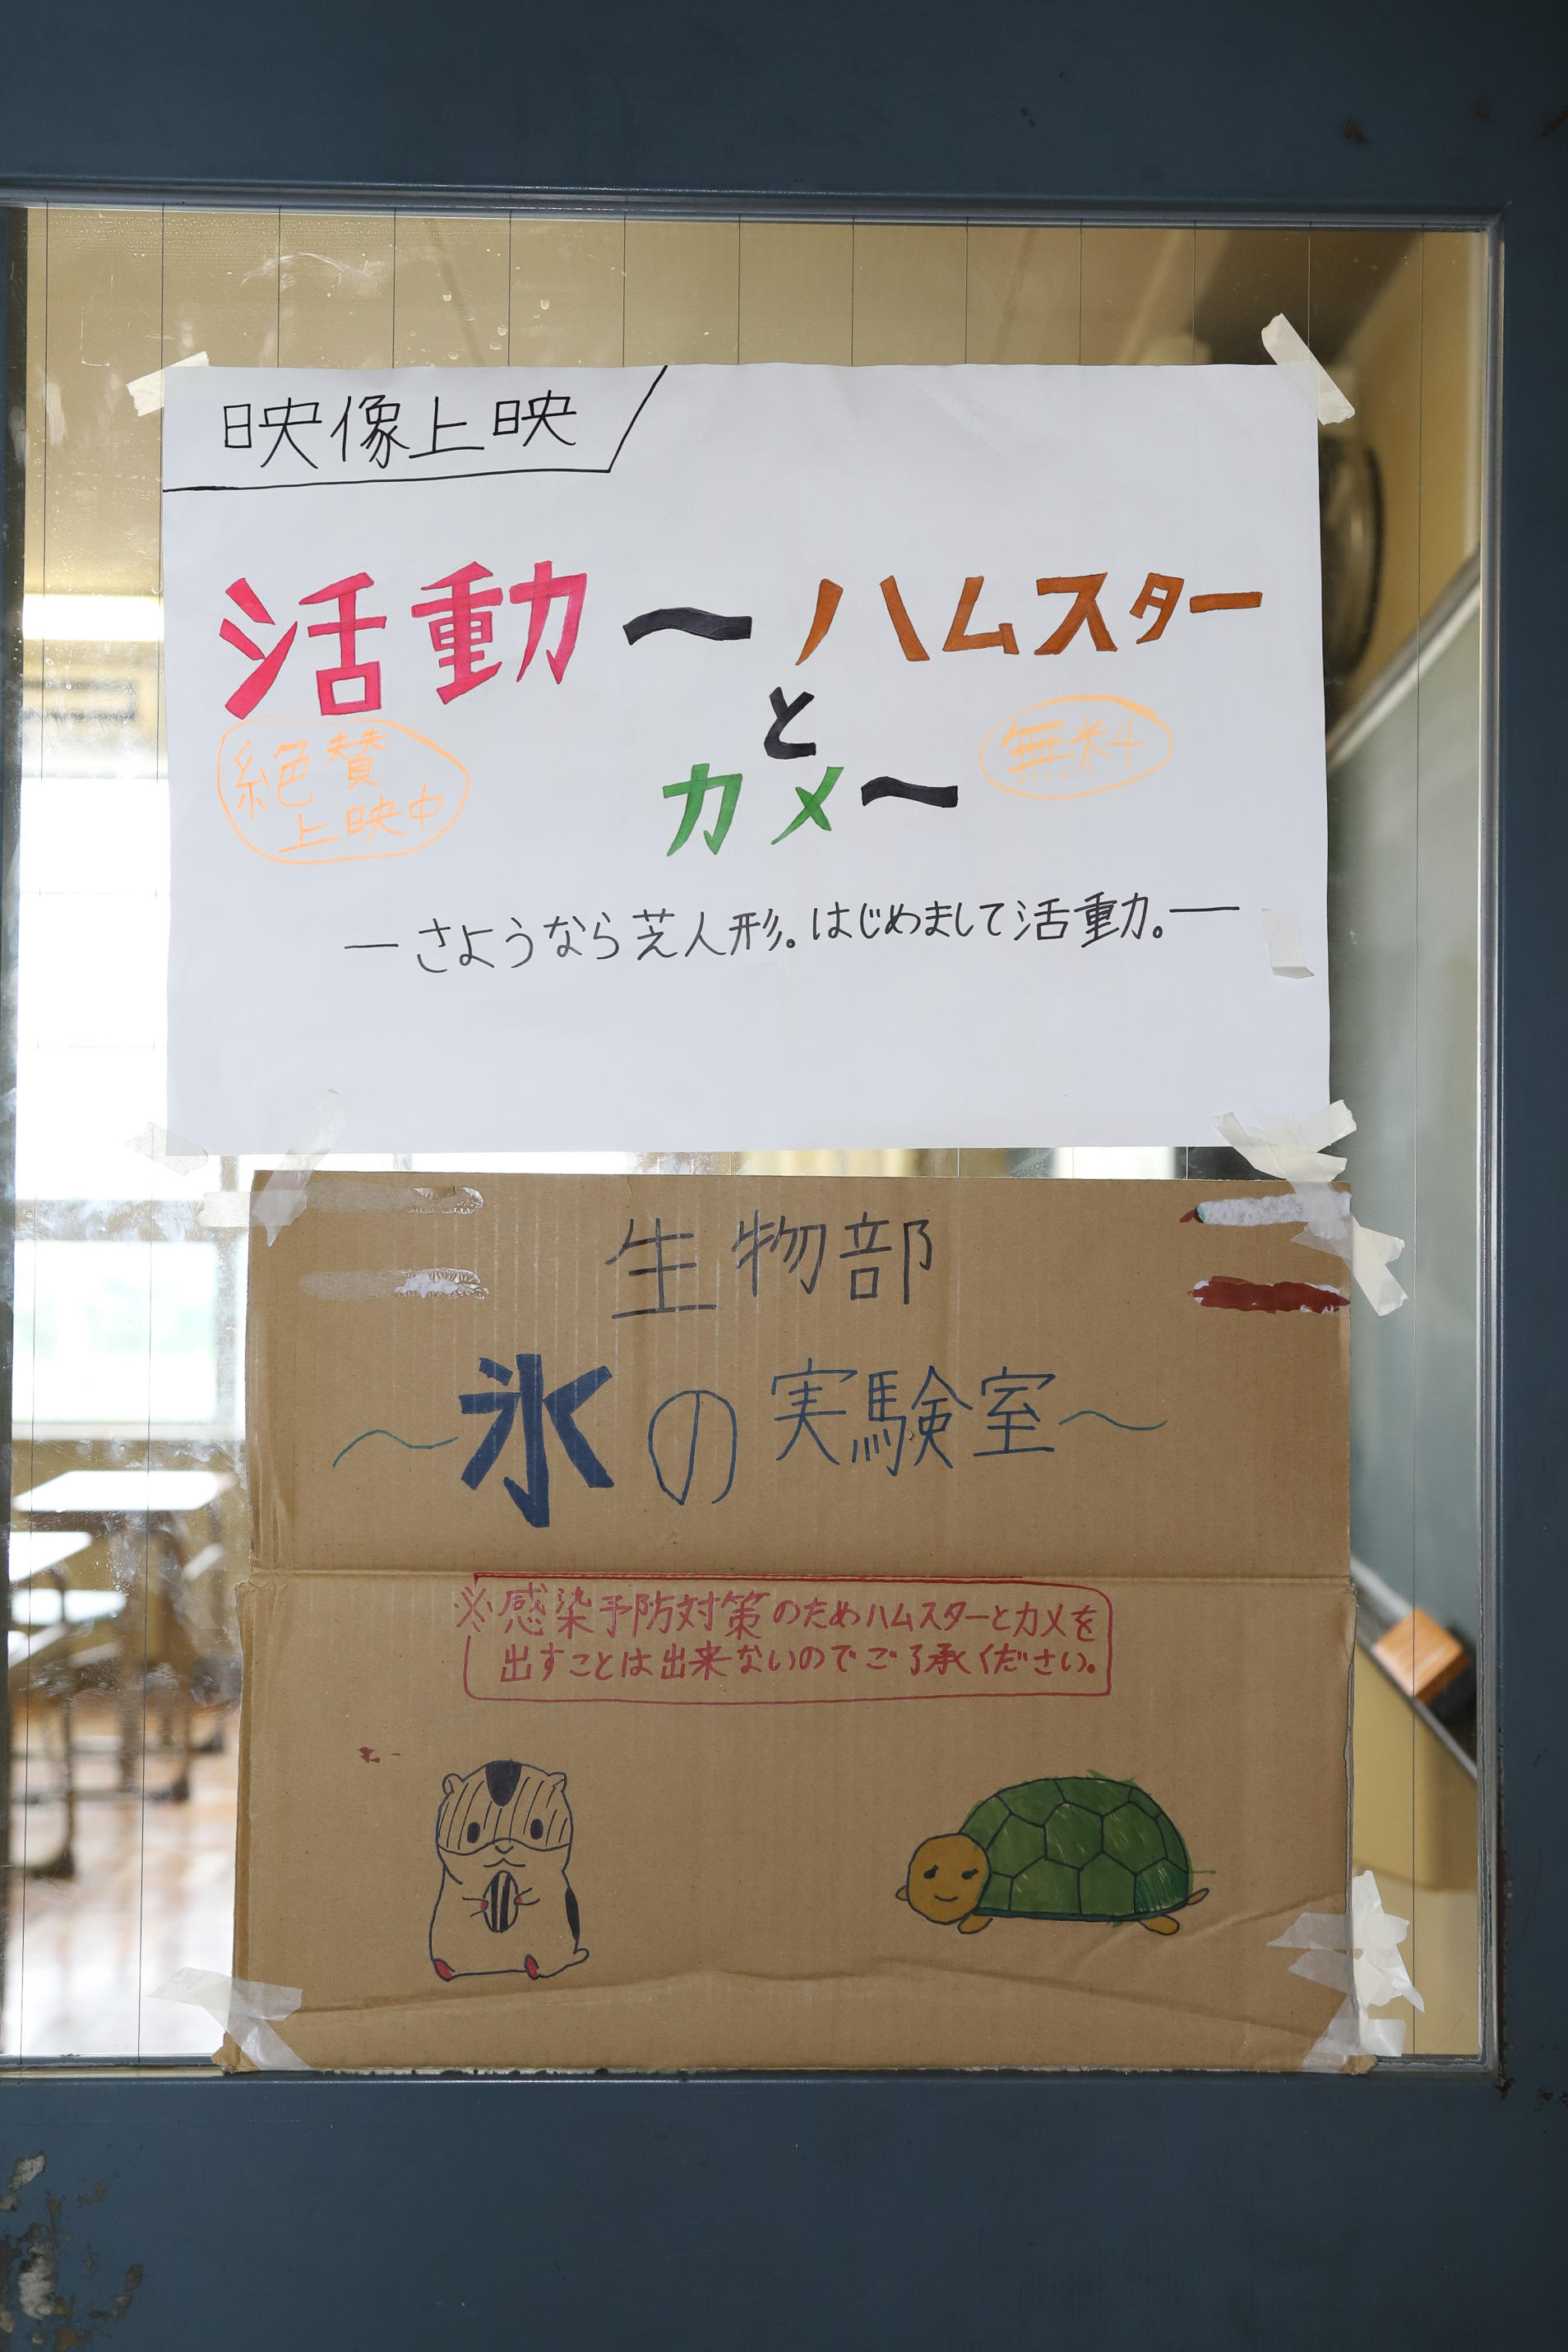 映像上映
活動〜ハムスター
と
カメ〜
絶賛
上映中
無料
―さようなら芝人形。はじめまして活動。―
生物部
〜氷の実験室〜
※感染予防対策のためハムスターとカメを
出すことは出来ないのでご了承ください。